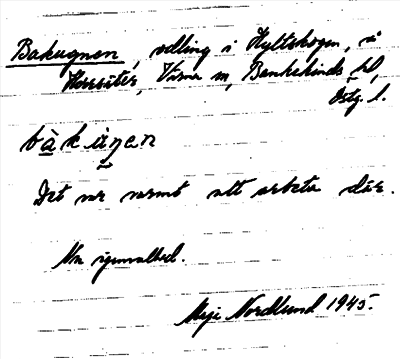 Bakugnen, odling i Hyltskogen, å
Korssäter, Värna sn, Bankekinds hd,
Östg. l.
bàkùŋen
Det var varmt att arbeta där.
Nu igenvallad.
Maje Nordlund 1945.